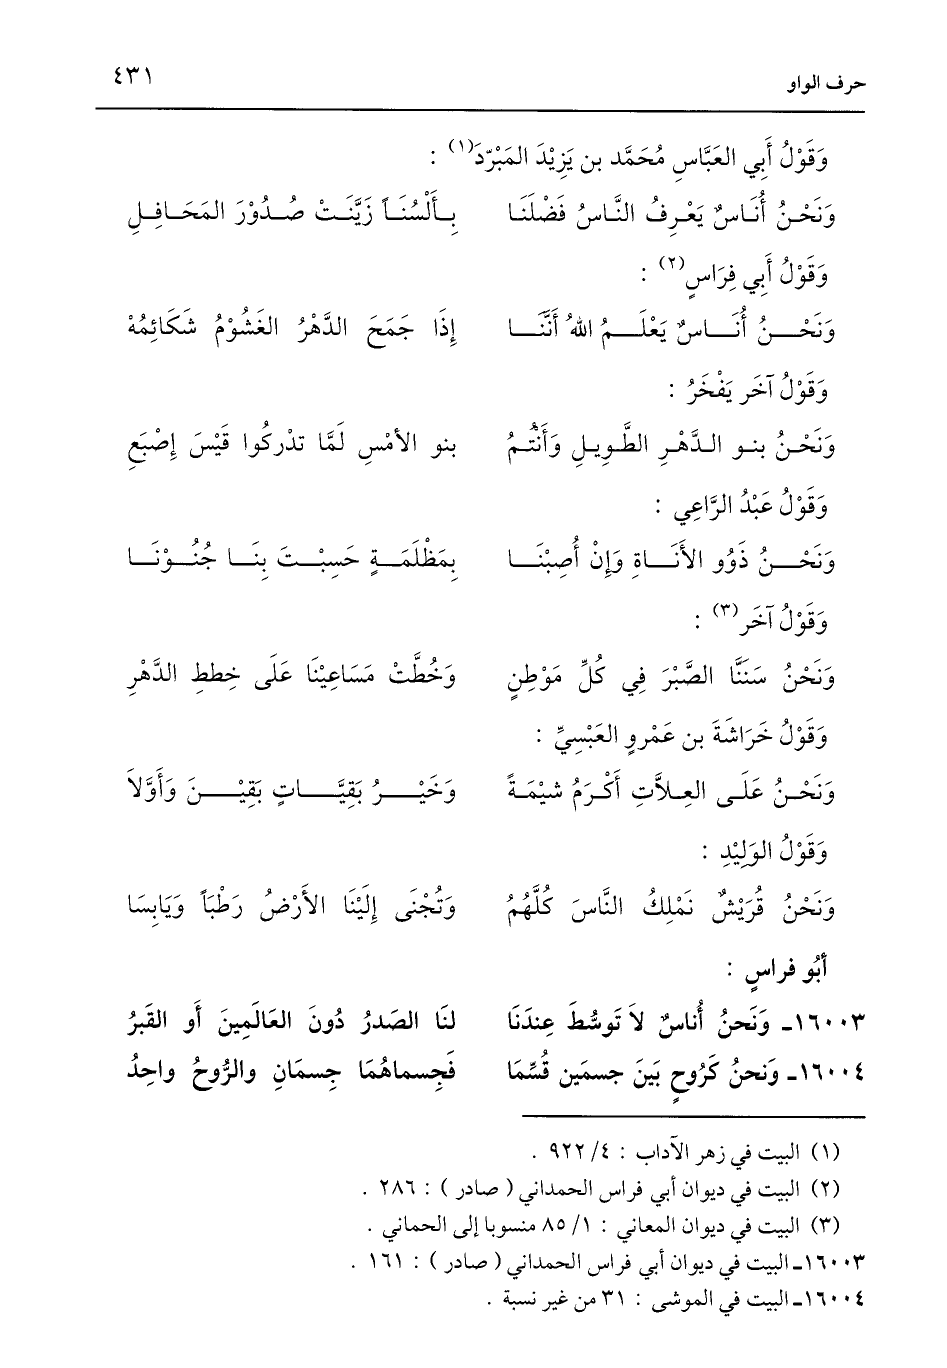 حرف الواو ٤٣١
وَقَوْلُ أَبِي العَبَّاسِ مُحَمَّد بن يَزِيْدَ المَبْرّدَ(١) :
وَنَحْنُ أُنَاسٌ يَعْرِفُ النَّاسُ فَضْلَنَا بِأَلْسُنَاً زَيَّنَتْ صُدُوْرَ المَحَافِلِ
وَقَوْلُ أَبِي فِرَاسٍ(٢) :
وَنَحْنُ أُنَاسٌ يَعْلَمُ اللهُ أَنَّنَا إِذَا جَمَحَ الدَّهْرُ الغَشُوْمُ شَكَائِمُهْ
وَقَوْلُ آخَر يَفْخَرُ :
وَنَحْنُ بنو الدَّهْرِ الطَّوِيلِ وَأَنْتُمُ بنو الأمْسِ لَمَّا تدْركُوا قَيْسَ إِصْبَعِ
وَقَوْلُ عَبْدُ الرَّاعِي :
وَنَحْنُ ذَوُو الأَنَاةِ وَإِنْ أُصِبْنَا بِمَظْلَمَةٍ حَسِبْتَ بِنَا جُنُوْنَا
وَقَوْلُ آخَر(٣) :
وَنَحْنُ سَنَنَّا الصَّبْرَ فِي كُلِّ مَوْطِنٍ وَخُطَّتْ مَسَاعِيْنَا عَلَى خِططِ الدَّهْرِ
وَقَوْلُ خَرَاشَةَ بن عَمْروٍ العَبْسِيِّ :
وَنَحْنُ عَلَى العِلاَّتِ أَكْرَمُ شيْمَةً وَخَيْرُ بَقِيَّاتٍ بَقِيْنَ وَأَوَّلاَ
وَقَوْلُ الوَلِيْدِ :
وَنَحْنُ قُرَيْشٌ نَمْلِكُ النَّاسَ كُلَّهُمُ وَتُجْنَى إِلَيْنَا الأَرْضُ رَطْبَاً وَيَابِسَا
أبُو فراسٍ :
١٦٠٠٣ـ وَنَحنُ أُناسٌ لاَ تَوسُّطَ عِندَنَا لنَا الصَدرُ دُونَ العَالَمِينَ أَو القَبرُ
١٦٠٠٤ـ وَنحنُ كَرُوحٍ بَينَ جسمَين قُسِّمَا فَجِسماهُمَا جِسمَانِ والرُّوحُ واحِدُ
(١) البيت في زهر الآداب : ٤/ ٩٢٢ .
(٢) البيت في ديوان أبي فراس الحمداني ( صادر ) : ٢٨٦ .
(٣) البيت في ديوان المعاني : ١/ ٨٥ منسوبا إلى الحماني .
١٦٠٠٣ـ البيت في ديوان أبي فراس الحمداني ( صادر ) : ١٦١ .
١٦٠٠٤ـ البيت في الموشى : ٣١ من غير نسبة .